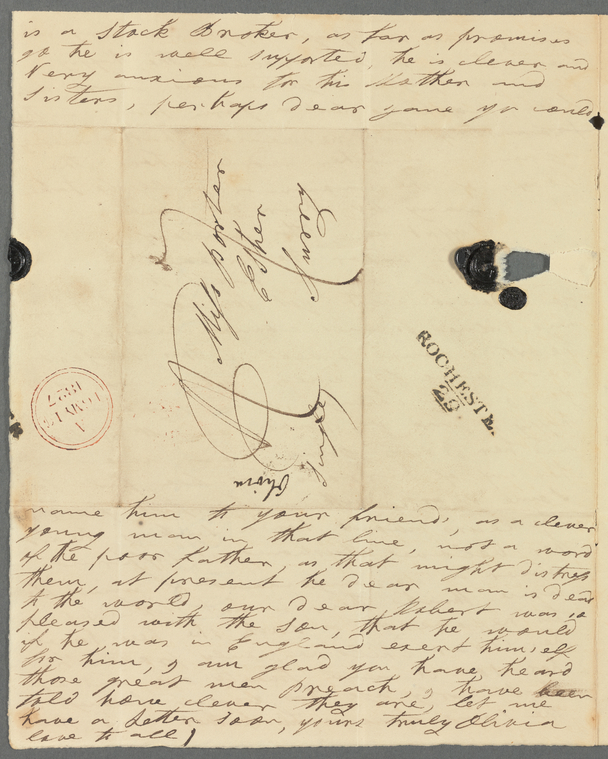 is a Stock Broker, as far as promises
go he is well supported, he is clever and
Very anxious for his Mother and
Sisters, perhaps dear Jane you would
Miss Porter
Esher
Surrey
Single
Olivia
ROCHESTE.
29
A
1827
name him to your friends, as a clever
young man in that line, not a word
of the poor Father, as that might distress
them, at present he dear man is dead
to the world, our dear Robert was so
pleased with the son, that he would
if he was in England exert himself
for him, I am glad you have heard
those great men preach, I have been
told how clever they are, let me
have a Letter soon, yours truly Olivia
love to all,